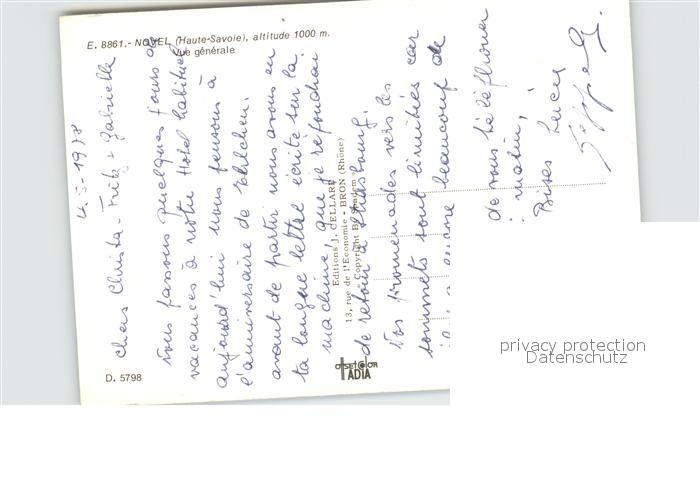 E. 8861.- NOVEL (Haute-Savoie), altitude 1000 m.
Vue générale
4.5-1978
chers Christa - Fritz + Gabrielle
Nous passons quelques jours de
vacances à notre Hotel habituel
aujourd'hui nous pensons à
l'anniversaire de
avant de partir nous avons eu
ta longue lettre écrite sur la
machine, que je répondrai
de retour à Strasbourg.
Nos promenades vers les
sommets sont limitées car
il y a encore beaucoup de
de vous téléphoner
matin,
Bises Lucy
Editions J. CELLARD
13, rue de l'Economie - BRON (Rhône)
Copyright By
D. 5798
OFFSET COLOR
IADIA
privacy protection
Datenschutz